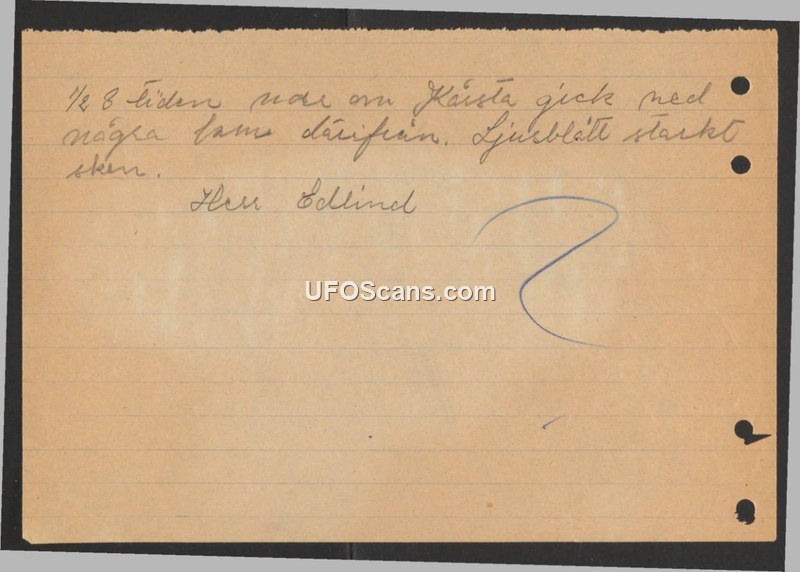 1/2 8 tiden norr om Kårsta gick ned
några km därifrån. Ljusblått starkt
sken.
Herr Edlind
UFOScans.com